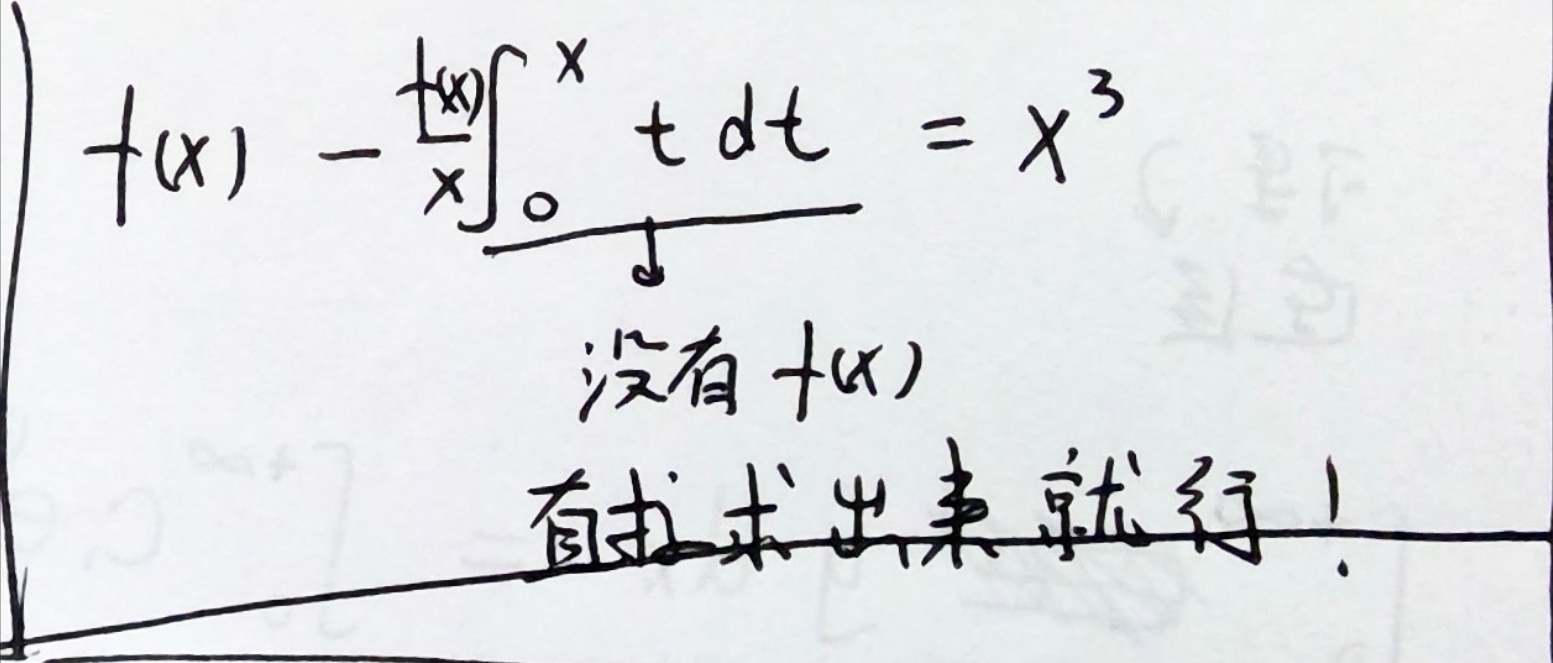 f(x) - f(x)/x ∫₀ˣ t dt = x³
没有 f(x)
直接求出来就行!